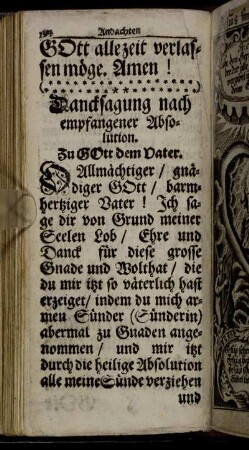 Andachten
GOtt allezeit verlas-
sen möge. Amen!
Dancksagung nach
empfangener Abso-
lution.
Zu GOtt dem Vater.
O Allmächtiger / gnä-
diger GOtt / barm-
hertziger Vater! Ich sa-
ge dir von Grund meiner
Seelen Lob / Ehre und
Danck für diese grosse
Gnade und Wolthat / die
du mir itzt so väterlich hast
erzeiget / indem du mich ar-
men Sünder (Sünderin)
abermal zu Gnaden ange-
nommen / und mir itzt
durch die heilige Absolution
alle meine Sünde verziehen
und